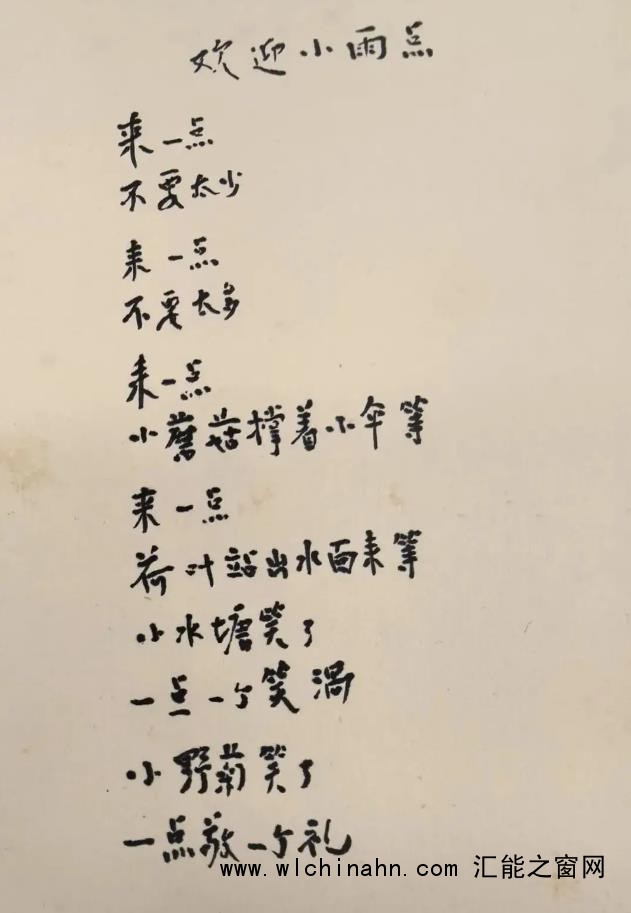 欢迎小雨点
来一点
不要太少
来一点
不要太多
来一点
小蘑菇撑着小伞等
来一点
荷叶站出水面来等
小水塘笑了
一点一个笑涡
小野菊笑了
一点敬一个礼
www.wlchinahn.com 汇能之窗网